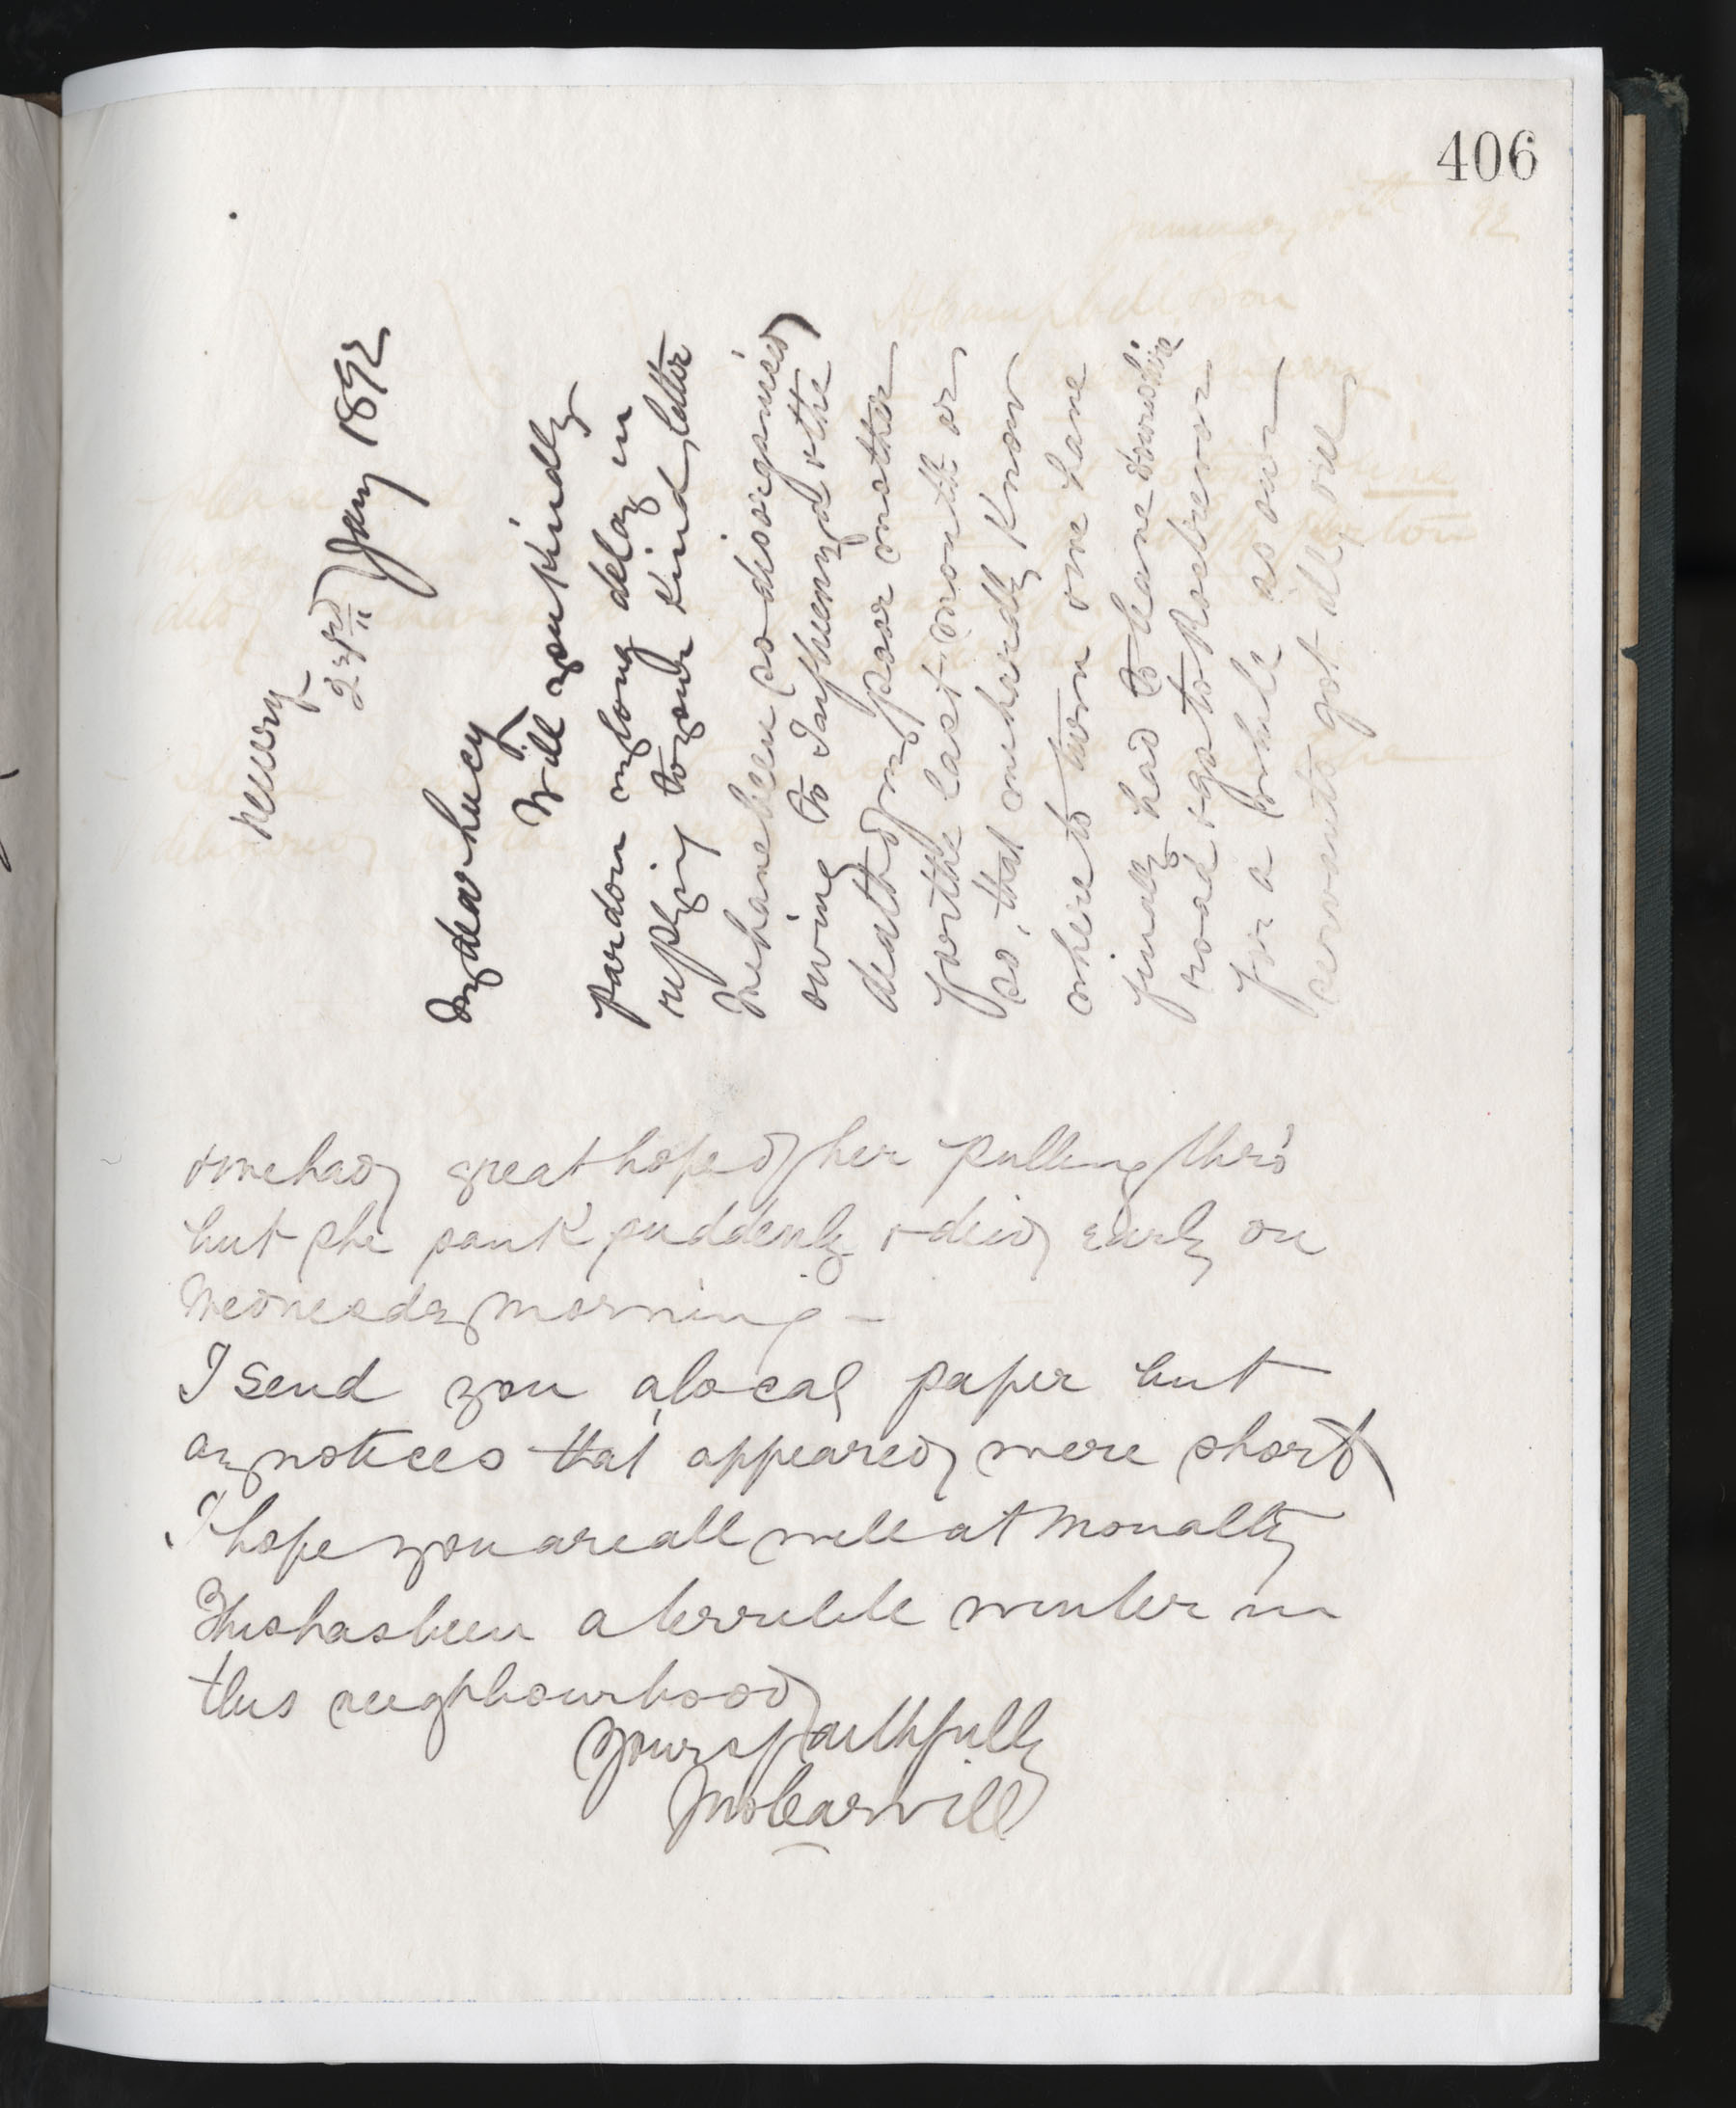 406
Newry
23rd Jany 1892
My dear Lucy
Will you kindly
pardon my long delay in
replying to your kind letter
We have been so disorganised
owing to Influenza & the
death of my poor mother
for the last month or
so, that we hardly know
where to turn one have
finally had to leave downshire
road & go to Rostrevor
for a while as our
servants got ill, one
& we had great hope of her pulling thro'
but she sank suddenly & died early on
Wednesday morning –
I send you a local paper but
any notices that appeared were short
I hope you are all well at Monalty
This has been a terrible winter in
this neighbourhood
Yours faithfully
Jno Carvill